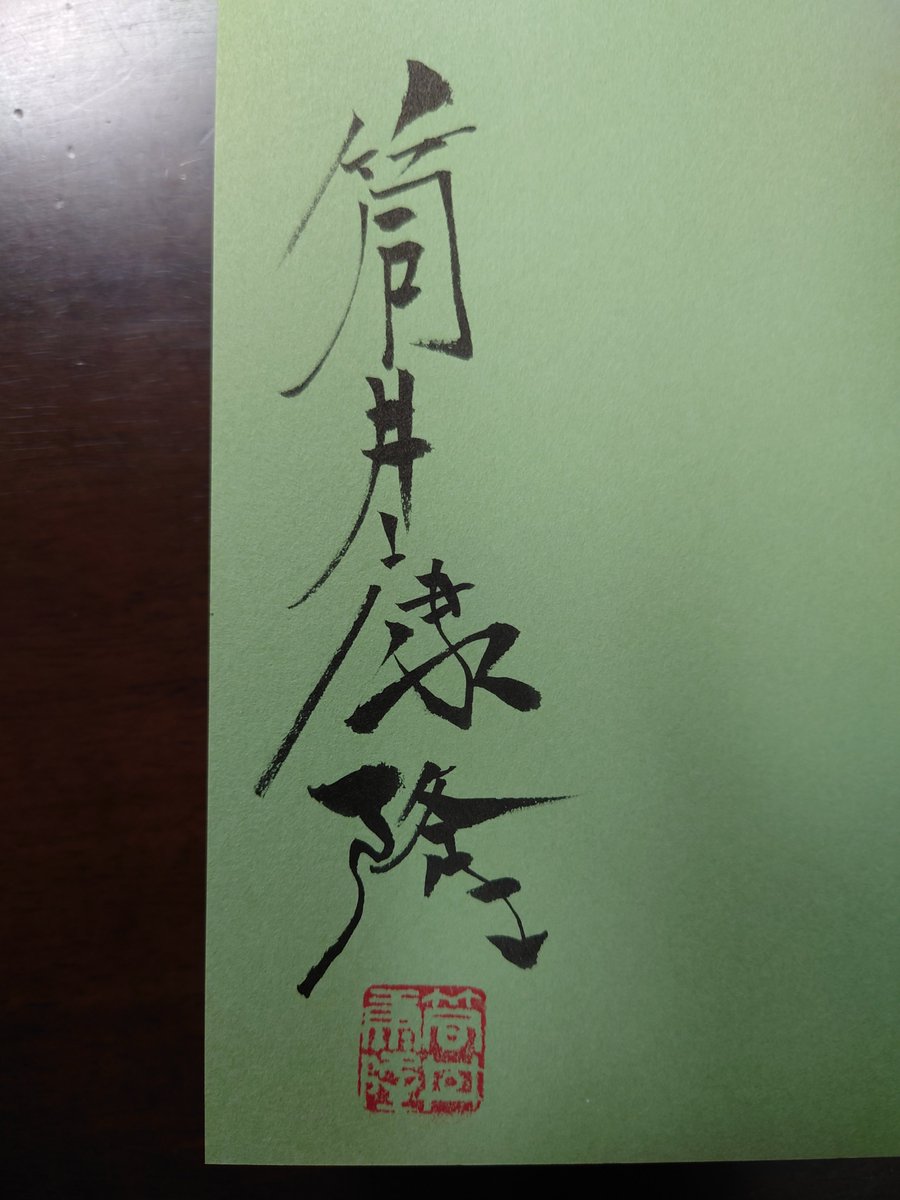 筒井康隆
筒井康隆